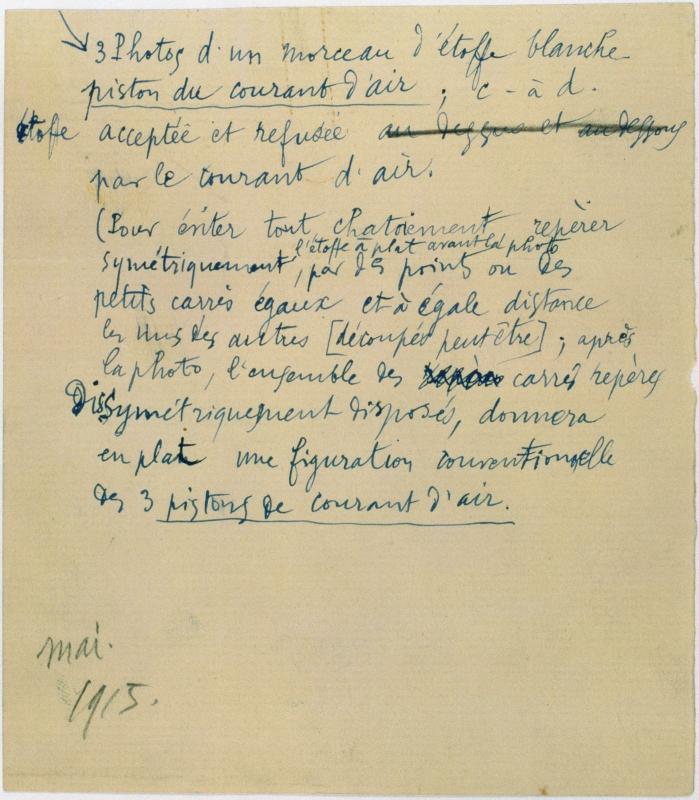 3 Photos d'un morceau d'étoffe blanche
piston du courant d'air ; c-à d.
étoffe acceptée et refusée au dessus et au dessous
par le courant d'air.
(Pour éviter tout chatoiement repèrer
l'étoffe à plat avant la photo
symétriquement, par des points ou des
petits carrés égaux et à égale distance
les uns des autres [découpés peut être] ; après
la photo, l'ensemble des carrés repères
Dissymétriquement disposés, donnera
en plat une figuration conventionnelle
des 3 pistons de courant d'air.
mai.
1915.